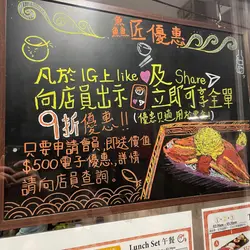 匠優惠
凡於IG上like及Share
向店員出示 立即可享全單
9折優惠!!
只要申請會員，即送價值
$500電子優惠，詳情
請向店員查詢。
Lunch Set 午餐